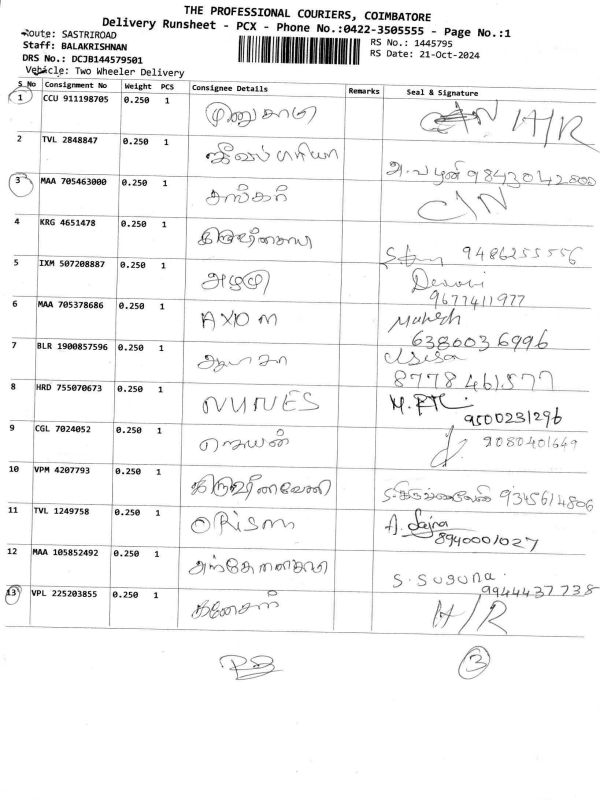 THE PROFESSIONAL COURIERS, COIMBATORE
Delivery Runsheet - PCX - Phone No.:0422-3505555 - Page No.:1
Route: SASTRIROAD
Staff: BALAKRISHNAN
RS No.: 1445795
DRS No.: DCJB144579501
RS Date: 21-Oct-2024
Vehicle: Two Wheeler Delivery
S No Consignment No Weight PCS Consignee Details Remarks Seal & Signature
1 CCU 911198705 0.250 1 H/R
2 TVL 2848847 0.250 1 9843042800
3 MAA 705463000 0.250 1 C/N
4 KRG 4651478 0.250 1 9486255556
5 IXM 507208887 0.250 1 அழகு Devovi
9677411977
6 MAA 705378686 0.250 1 AXIOM Mahesh
6380036996
7 BLR 1900857596 0.250 1
8778461577
8 HRD 755070673 0.250 1 NUNES
9500231296
9 CGL 7024052 0.250 1 ஜெயன் 9080401649
10 VPM 4207793 0.250 1 திருவீனவேணி 9345614806
11 TVL 1249758 0.250 1 ORISM A. Sajna
8940001027
12 MAA 105852492 0.250 1 S. Suguna.
9944437738
13 VPL 225203855 0.250 1 கணேசன் H/R
3